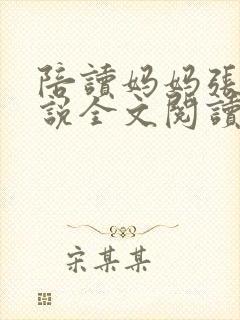 陪讀妈妈張
說全文閱讀
宋某某